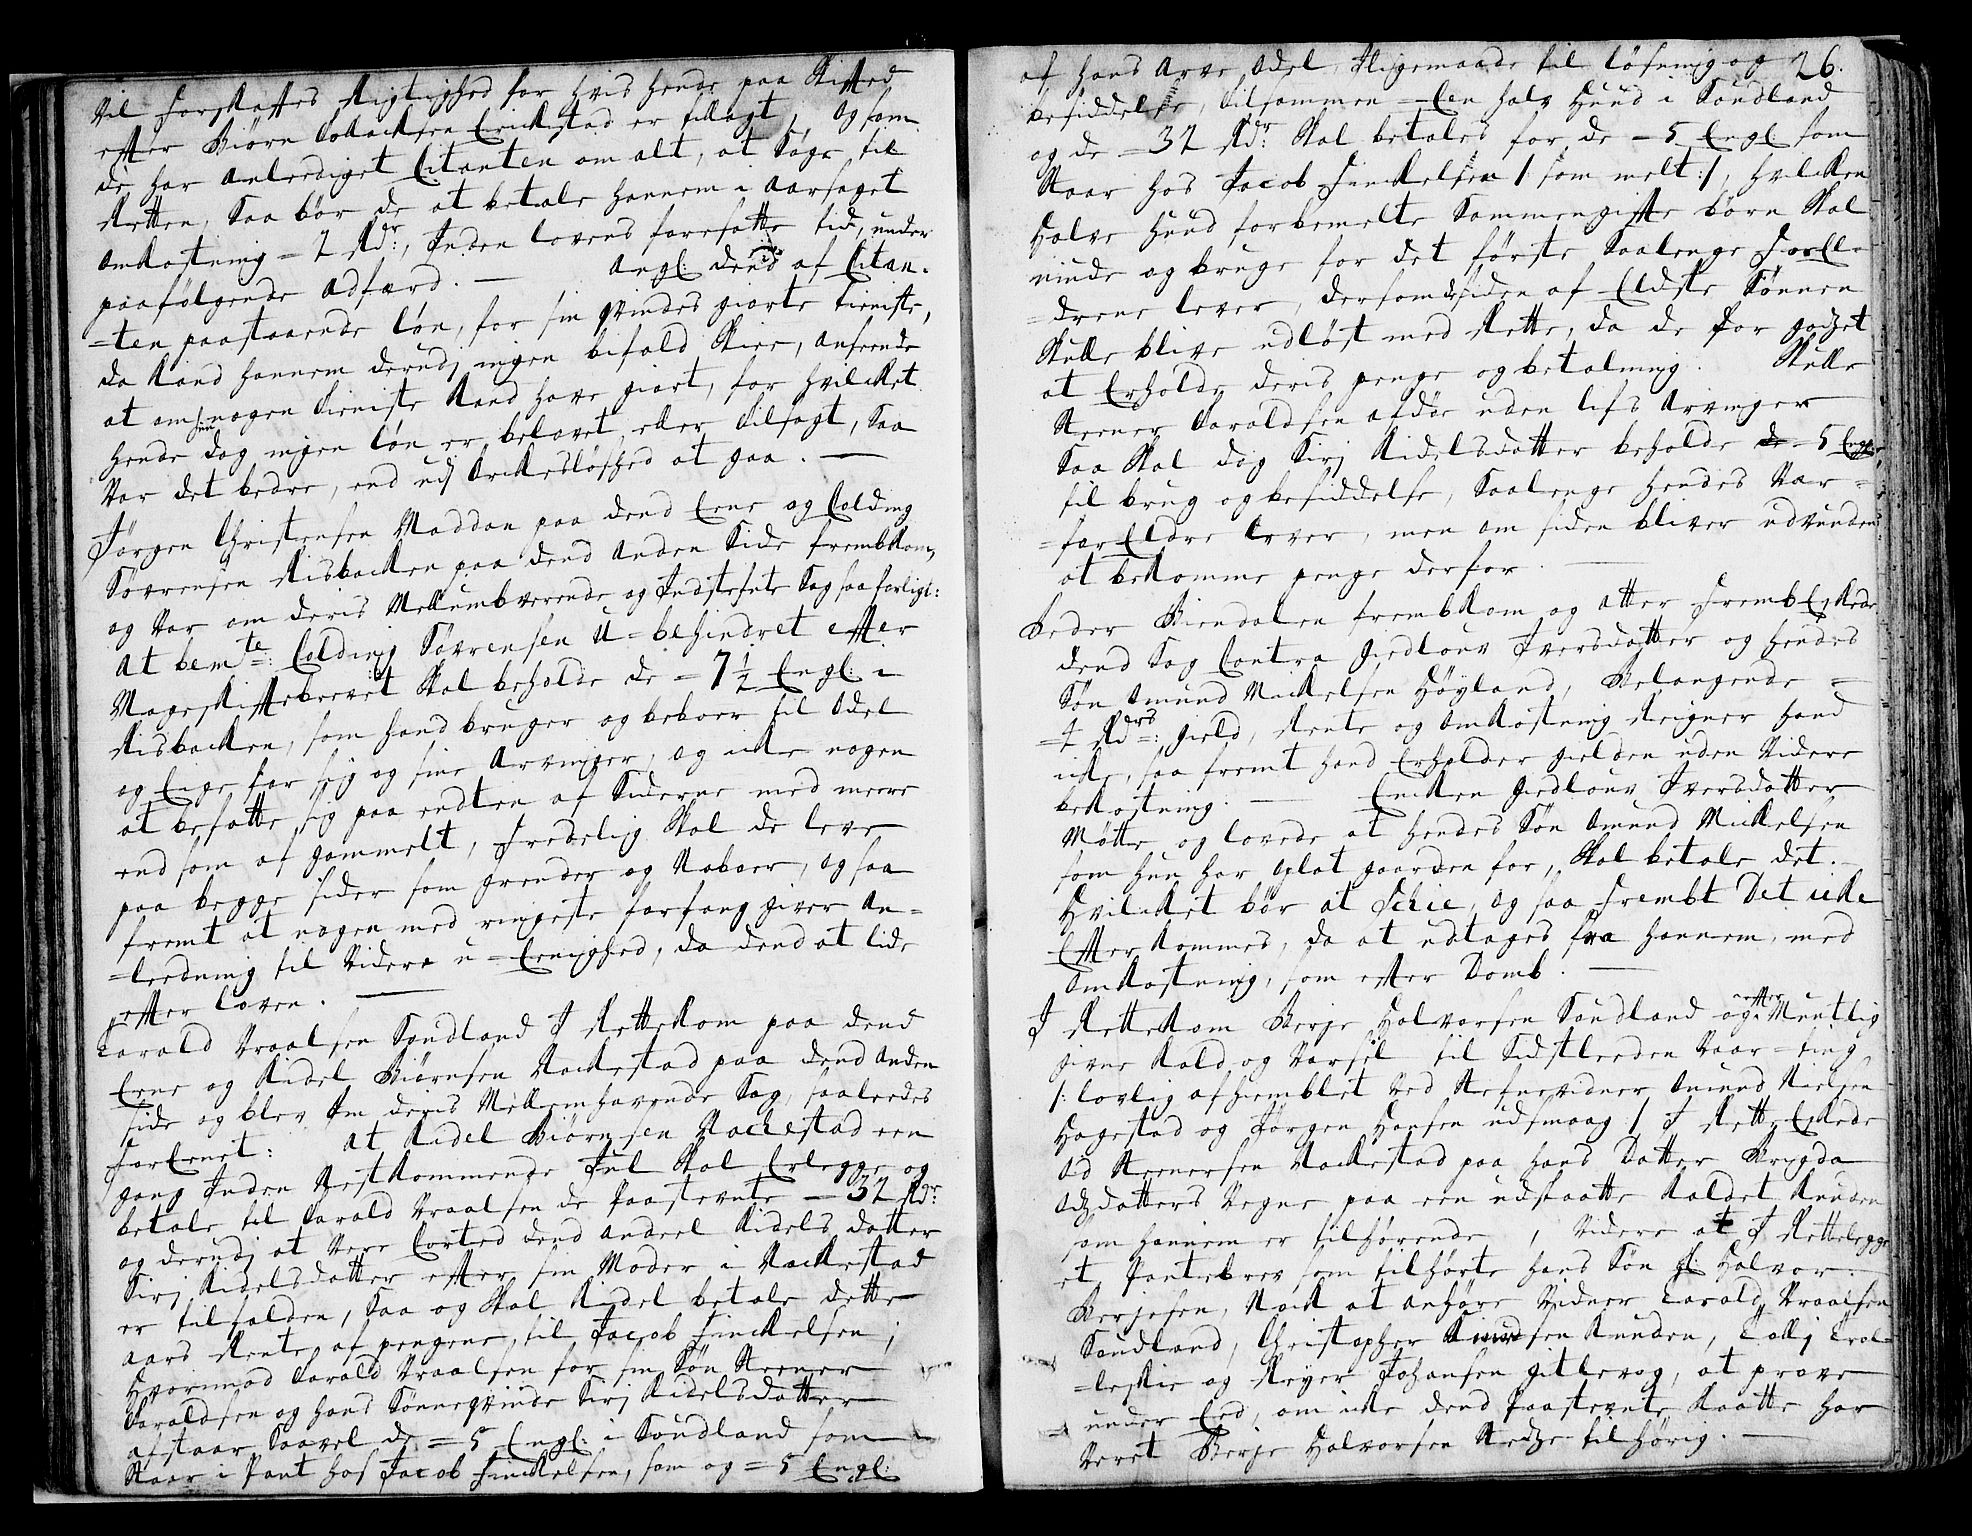 til forskaffes Rigtighed for hvis hende paa Skifted
efter Biørn Erickstad er tillagt, Og som
de har anlediget Citanten om alt, at Søge til
Retten, Saa bør de at betale hannem i aarsaget
omkostning = 2 Rdr:, Inden lovens foresatte tid, under
paafølgende adfærd. — Angl: dend af Citan-
=ten paastaaende løn, for sin qvindes giorte tieniste,
da kand hannem derudj ingen bifald skiee, anseende
at om hun nogen tieniste kand have giort, for hvilcket
hende dog ingen løn er belovet eller tilsagt, Saa
Var det bedre, end udjØrckesløshed at gaa. —
Jørgen Christensen Maddan paa dend Eene og Colding
Sørensen Risbacken paa dend anden Side frembkom,
og Var om deris Mellumbværende og Indstefnte Sag saa forligt:
At bemte: Colding Sørensen U=behindret efter
Mageskiftebrevet skal beholde de = 7½ Engl: i
Risbacken, som hand bruger og beboer til Odel
og Eige for sig og sine Arvinger, og icke nogen
at befatte sig paa endten af Siderne med meere
end som af gammelt, fredelig skal de leve
paa begge sider som grender og Naboer, og saa
fremt at nogen med ringeste forfang giver An=
=leedning til Videre u=Eenighed, da dend at lide
efter loven. —
Tarald Vraalsen Sundland I Rettekom paa dend
Eene og Kidel Biørnsen Rackestad paa dend anden
side og blev om deris Mellemhavende Sag, saaledes
forEenet: at Kidel Biørnsen Rackestad een
gang Inden Nestkommende Juul skal Erlegge og
betale til Tarald Vraalsen de Paastevnte — 32 Rdr:
og derudj at Være Corted dend andeel Kidels datter
Sirj Kidelsdatter efter sin Moder i Rackestad
er tilfalden, Saa og skal Kidel betale dette
aars Rente af pengene, til Jacob Finckelsen;
Hvormod Tarald Vraalsen for sin Søn Steener
Taraldsen og hans Sønneqvinde Sirj Kidelsdatter
afstaar Saavel de = 5 Engl: i Sundland som
Staar i Pant hos Jacob Finckelsen, som og = 5 Engl:
af hans Arve Odel, Ligemaade til løsning og 26.
besiddelse, tilsammen = Een halv Huud i Sundland
og de = 32 Rdr: skal betales for de = 5 Engl: som
Staar hos Jacob Finckelsen /: som melt :/, hvilcken
Halve Huud forbemelte Sammengifte børn skal
niude og bruge for det første Saalenge Forell-
=drene lever, dersom de siden af Eldste Sønnen
skulle blive udløst med Rette, da de for godzet
at Erholde deris penge og betalning. Skulle
Steener Taraldsen afdøe uden lifs Arvinger
Saa skal dog Sirj Kidelsdatter beholde de = 5 Engl:
til brug og besiddelse, Saalenge hendes Vær=
=forEldre lever, men om siden bliver udvunden:
at bekomme penge derfor. —
Peder Biendalen frembkom og atter frembEskede
dend Sag Contra giedlouv Iversdatter og hendes
Søn Amund Mickelsen Høyland, Belangende =
= 4 Rdrs: gield, Rente og omkostning Reigner hand
icke, saa fremt hand Erholder gielden uden Videre
bekostning. — Encken giedlouv Iversdatter
Møtte og lovede at hendes Søn Amund Mickelsen
som hun har oplat gaarden for, skal betale det. —
Hvilcket bør at Schee, og saa frembt Det icke
Efterkommes, da at udtages fra hannem, med
omkostning, som efter Domb. —
I Rettekom Berje Halvorsen Sundland og efter Muntlig
givne Kald og Varsel til Sidstleeden Vaar=ting
/: lovlig afhiemblet Ved Stefnevidner Amund Nielsen
Hagestad og Jørgen Hansen udsmaag :/ I Rette Eskede
Od Steenersen Rackestad paa hans Datter Brygda
Odzdatters Vegne paa een udstaatte Kaldet Knuden
som hannem er tilhørende, Videre at I Rettelegge
et Pantebrev som tilhørte hans Søn Sl: Halvor
Berjesen, Nock at anhøre Vidner Tarald Vraalsen
Sundland, Christopher Knudsen Knuden,
=leskie og Reyer Johansen gitlevog, at prove
under Eed, om icke dend Paastevnte staatte har
Været Berje Halvorsen Stedze tilhørig. —